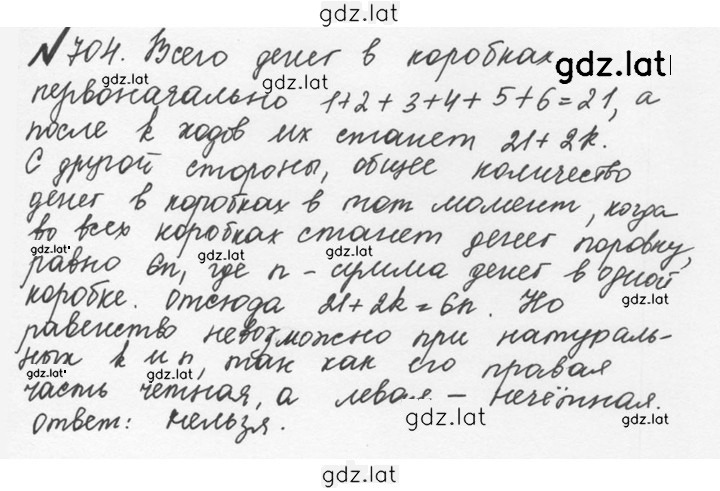 gdz.lat
№704. Всего денег в коробках
gdz.lat
gdz.lat
первоначально 1+2+3+4+5+6=21, а
после k ходов их станет 21+2k.
С другой стороны, общее количество
денег в коробках в тот момент, когда
во всех коробках станет денег поровну,
gdz.lat
gdz.lat
равно 6n, где n - сумма денег в одной
коробке. Отсюда 21+2k=6n. Но
gdz.lat
равенство невозможно при натураль-
ных k и n, так как его правая
gdz.lat
gdz.lat
часть четная, а левая - нечётная.
Ответ: нельзя.
gdz.lat
gdz.lat
gdz.lat